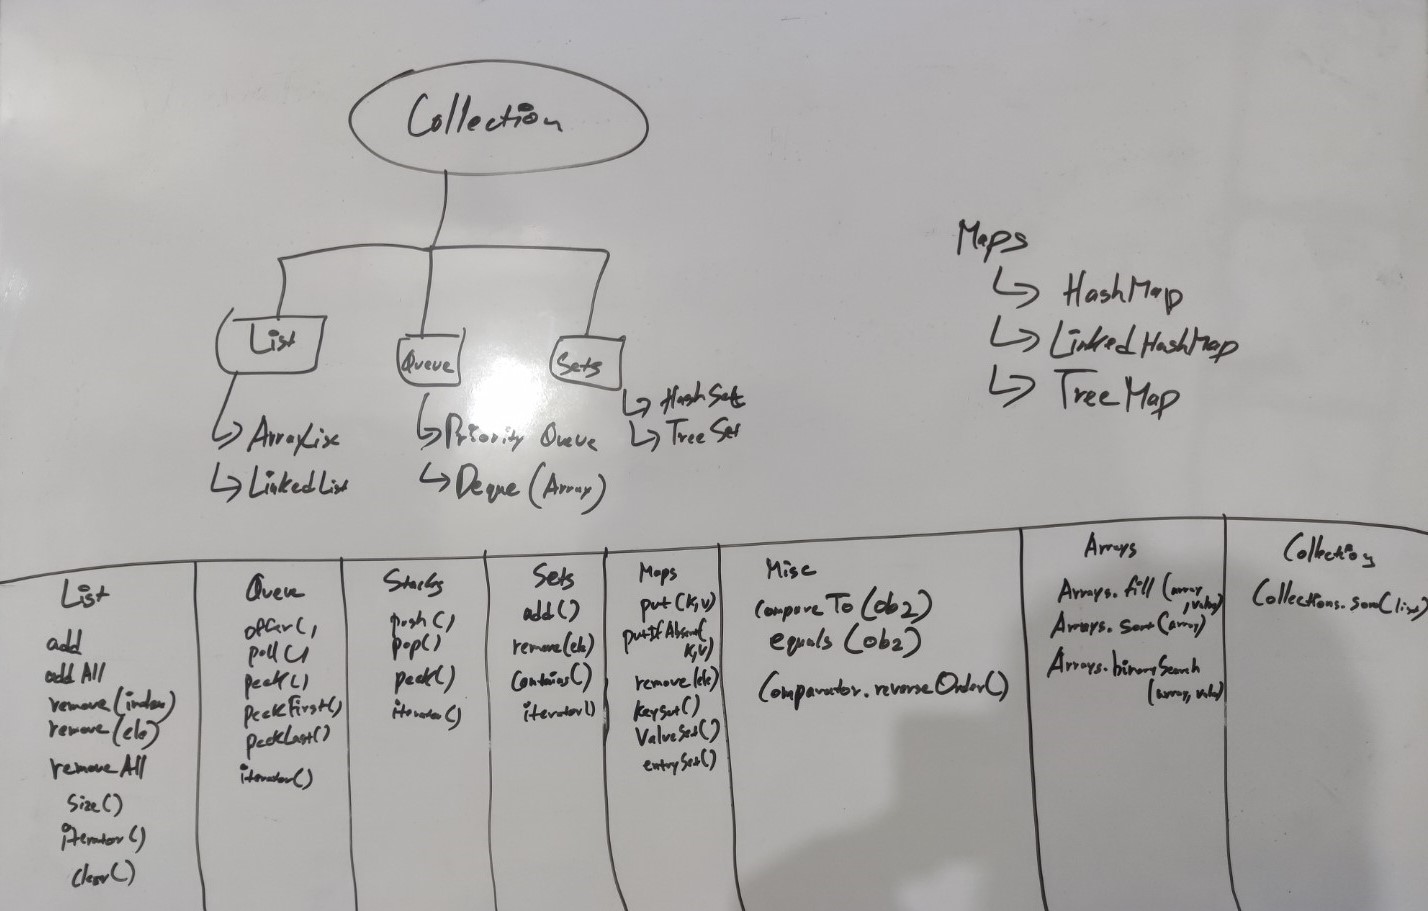 Collection
List
Queue
Sets
ArrayList
LinkedList
Priority Queue
Deque (Array)
HashSet
TreeSet
Maps
HashMap
LinkedHashMap
TreeMap
List
add
add All
remove (index)
remove (ele)
remove All
Size()
iterator()
clear()
Queue
offer()
poll()
peek()
peekFirst()
peekLast()
iterator()
Stacks
push()
pop()
peek()
iterator()
Sets
add()
remove(ele)
Contains()
iterator()
Maps
put (K,V)
putIfAbsent(
K,V)
remove(ele)
KeySet()
ValueSet()
entrySet()
Misc
CompareTo (ob2)
equals (ob2)
Comparator.reverseOrder()
Arrays
Arrays.fill (array
,value)
Arrays.sort(array)
Arrays.binarySearch
(array, value)
Collection
Collections.som(list)